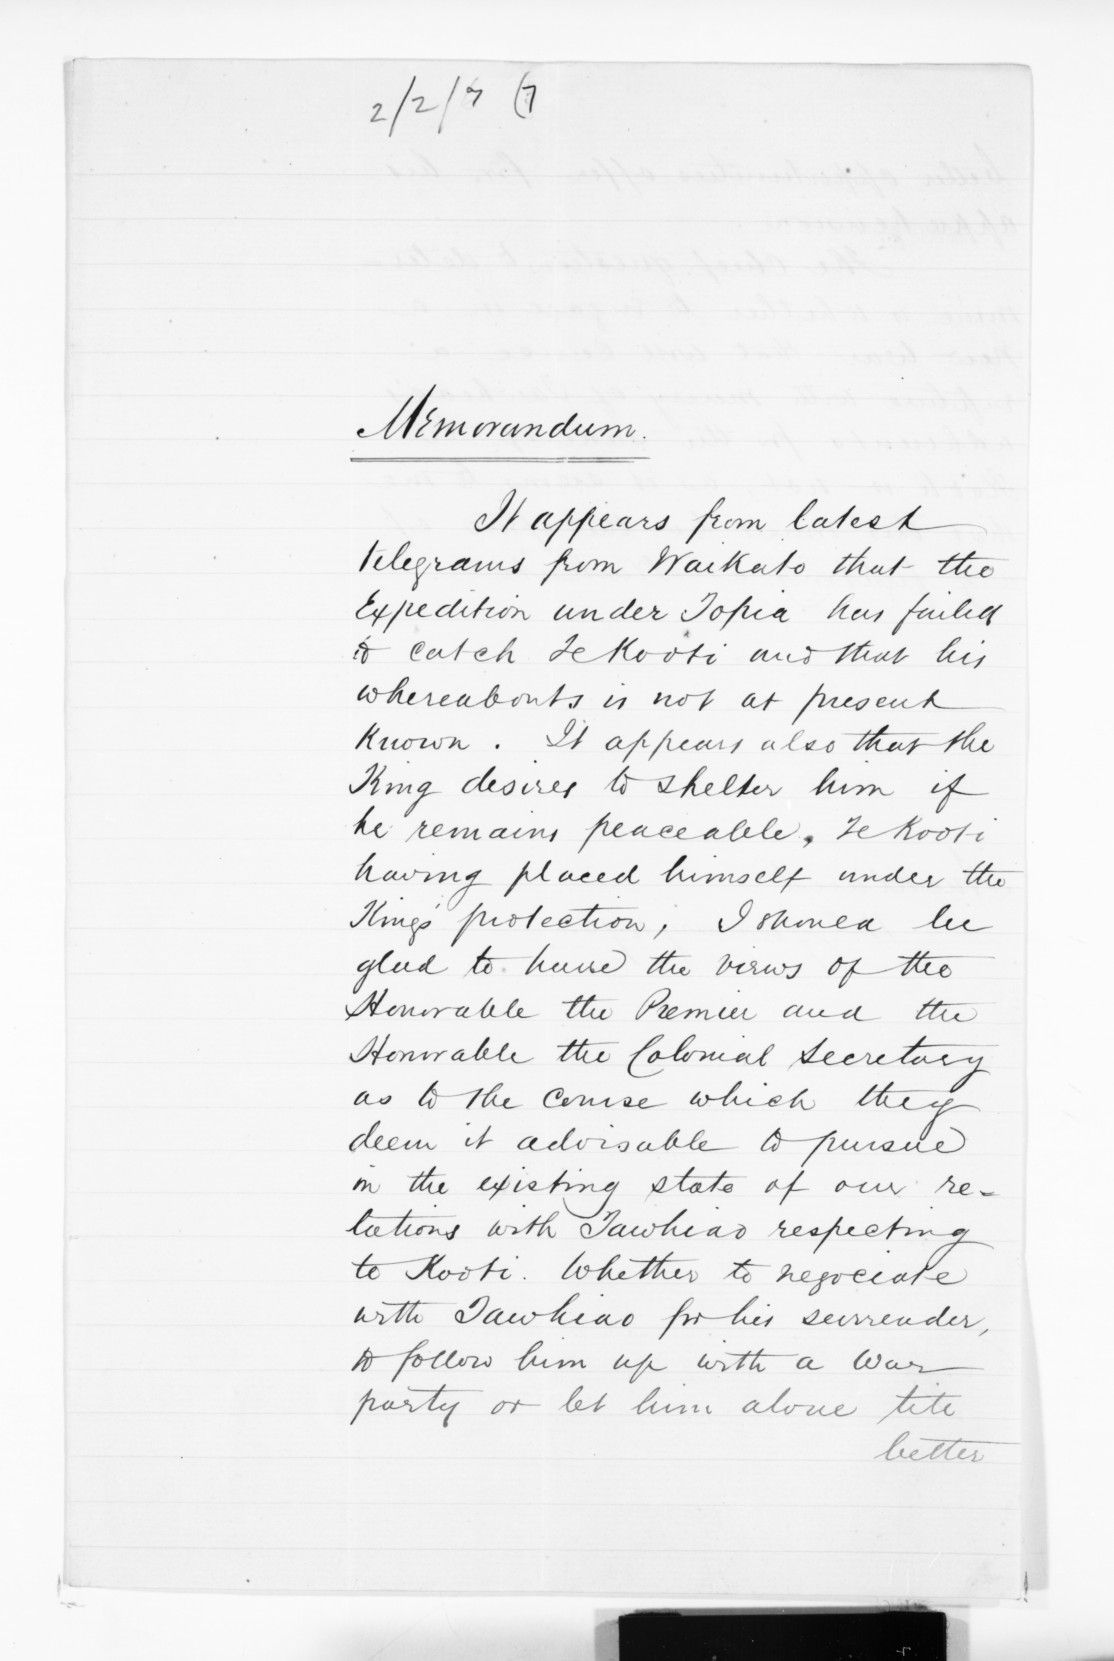 2/2/7 (7
Memorandum.
It appears from latest
telegrams from Waikato that the
Expedition under Topia has failed
to catch Te Kooti and that his
whereabouts is not at present
known. It appears also that the
King desires to shelter him if
he remains peaceable, Te Kooti
having placed himself under the
King's protection, I should be
glad to have the views of the
Honorable the Premier and the
Honorable the Colonial Secretary
as to the course which they
deem it advisable to pursue
in the existing state of our re-
lations with Tawhiao respecting
te Kooti. Whether to negociate
with Tawhiao for his surrender,
to follow him up with a War
party or let him alone till
better